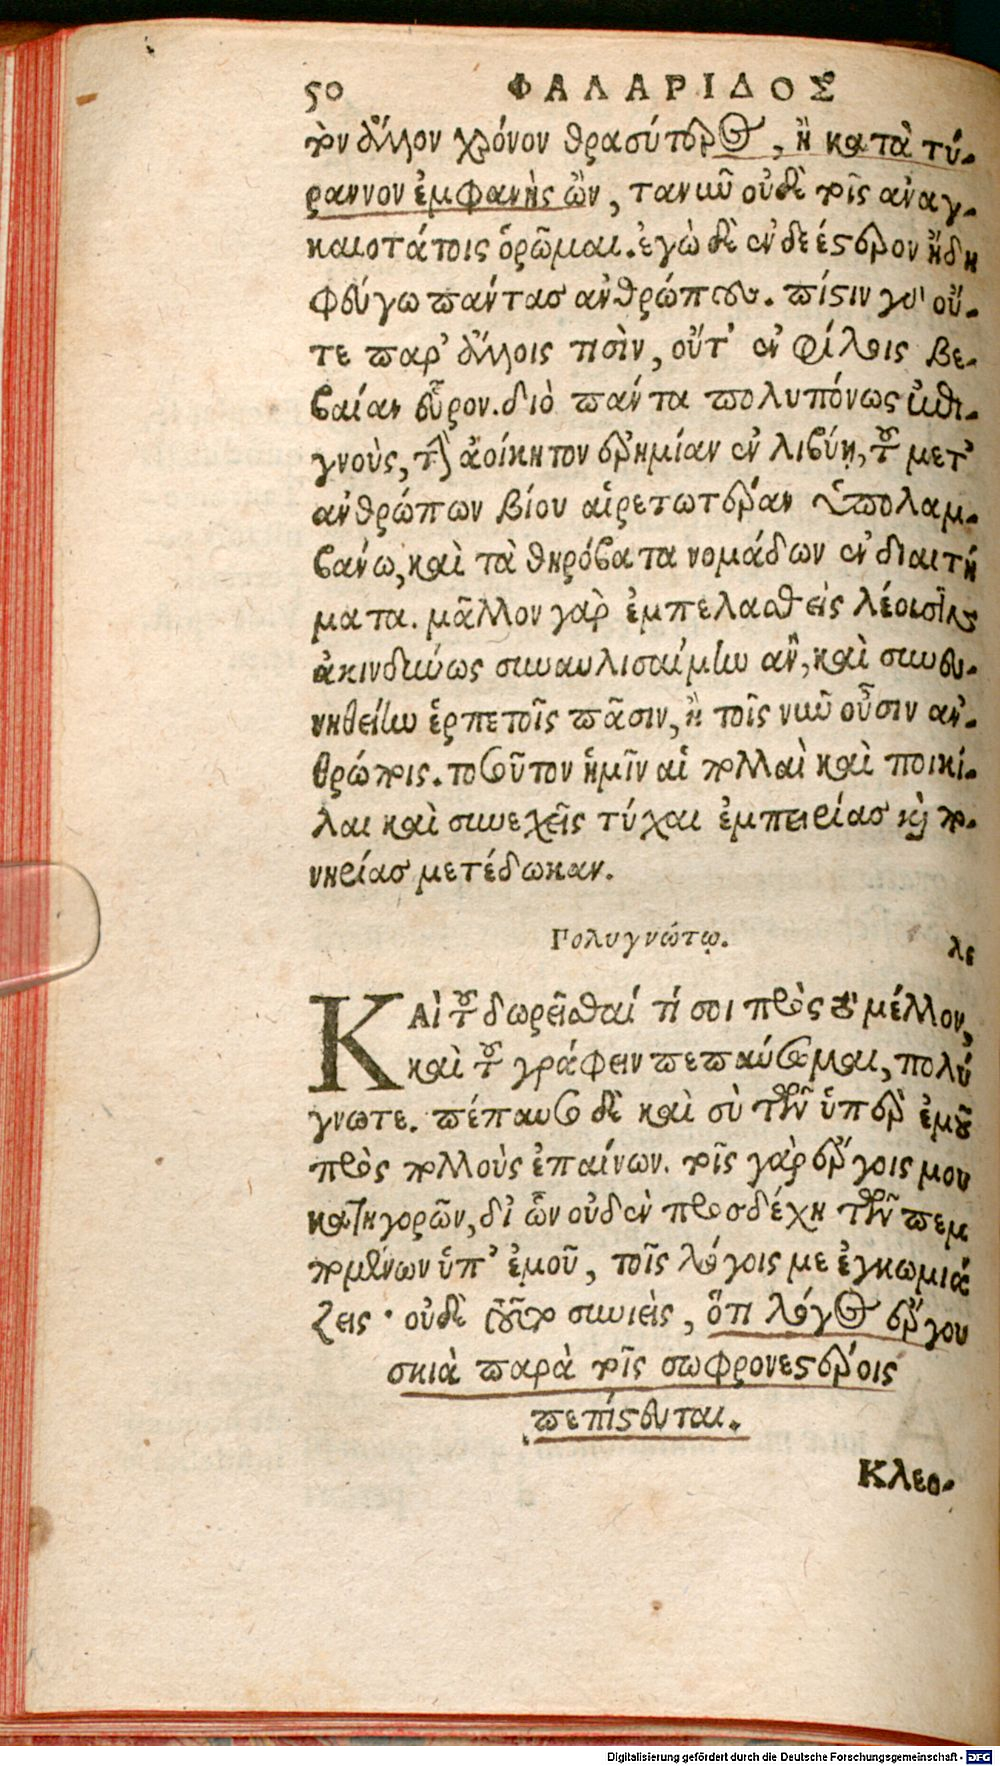 50 ΦΑΛΑΡΙΔΟΣ
τὸν ἄλλον χρόνον θρασύτερος, ἢ κατὰ τύ-
ραννον ἐμφανὴς ὢν, τανῦν οὐδὲ τοῖς ἀναγ-
καιοτάτοις ὁρῶμαι. ἐγὼ δὲ ἐνδεέστερον ἤδη
φεύγω πάντας ἀνθρώπους. πίστιν γὸ οὔ-
τε παρ' ἄλλοις τισὶν, οὔτ' ἐν φίλοις βε-
βαίαν εὗρον. διὸ πάντα πολυπόνως καθι-
γνοὺς, τὴν ἀοίκητον ἐρημίαν ἐν λιβύῃ, τοῦ μετ'
ἀνθρώπων βίου αἱρετωτέραν ὑπολαμ-
βάνω, καὶ τὰ θηρόβατα νομάδων ἐνδιαιτή
ματα. μᾶλλον γὰρ ἐμπελασθεὶς λέουσί τε
ἀκινδύνως συναυλισαίμην ἂν, καὶ συνευ-
νηθείην ἑρπετοῖς πᾶσιν, ἢ τοῖς νῦν οὖσιν ἀν-
θρώποις. τοσοῦτον ἡμῖν αἱ πολλαὶ καὶ ποικί-
λαι καὶ συνεχεῖς τύχαι ἐμπειρίας καὶ πο-
νηρίας μετέδωκαν.
Πολυγνώτῳ. λε
ΚΑΙ τοῦ δωρεῖσθαί τί σοι πρὸς τὸ μέλλον,
καὶ τοῦ γράφειν πεπαύσομαι, πολύ
γνωτε. πέπαυσο δὲ καὶ σὺ τῶν ὑπὲρ ἐμοῦ
πρὸς πολλοὺς ἐπαίνων. τοῖς γὰρ ἔργοις μου
κατηγορῶν, δι' ὧν οὐδὲν προσδέχῃ τῶν πεμ
πομένων ὑπ' ἐμοῦ, τοῖς λόγοις με ἐγκωμιά
ζεις· οὐδὲ τοῦτο συνιεὶς, ὅτι λόγος ἔργου
σκιὰ παρὰ τοῖς σωφρονεστέροις
πεπίστευται.
Κλεο-
Digitalisierung gefördert durch die Deutsche Forschungsgemeinschaft - DFG